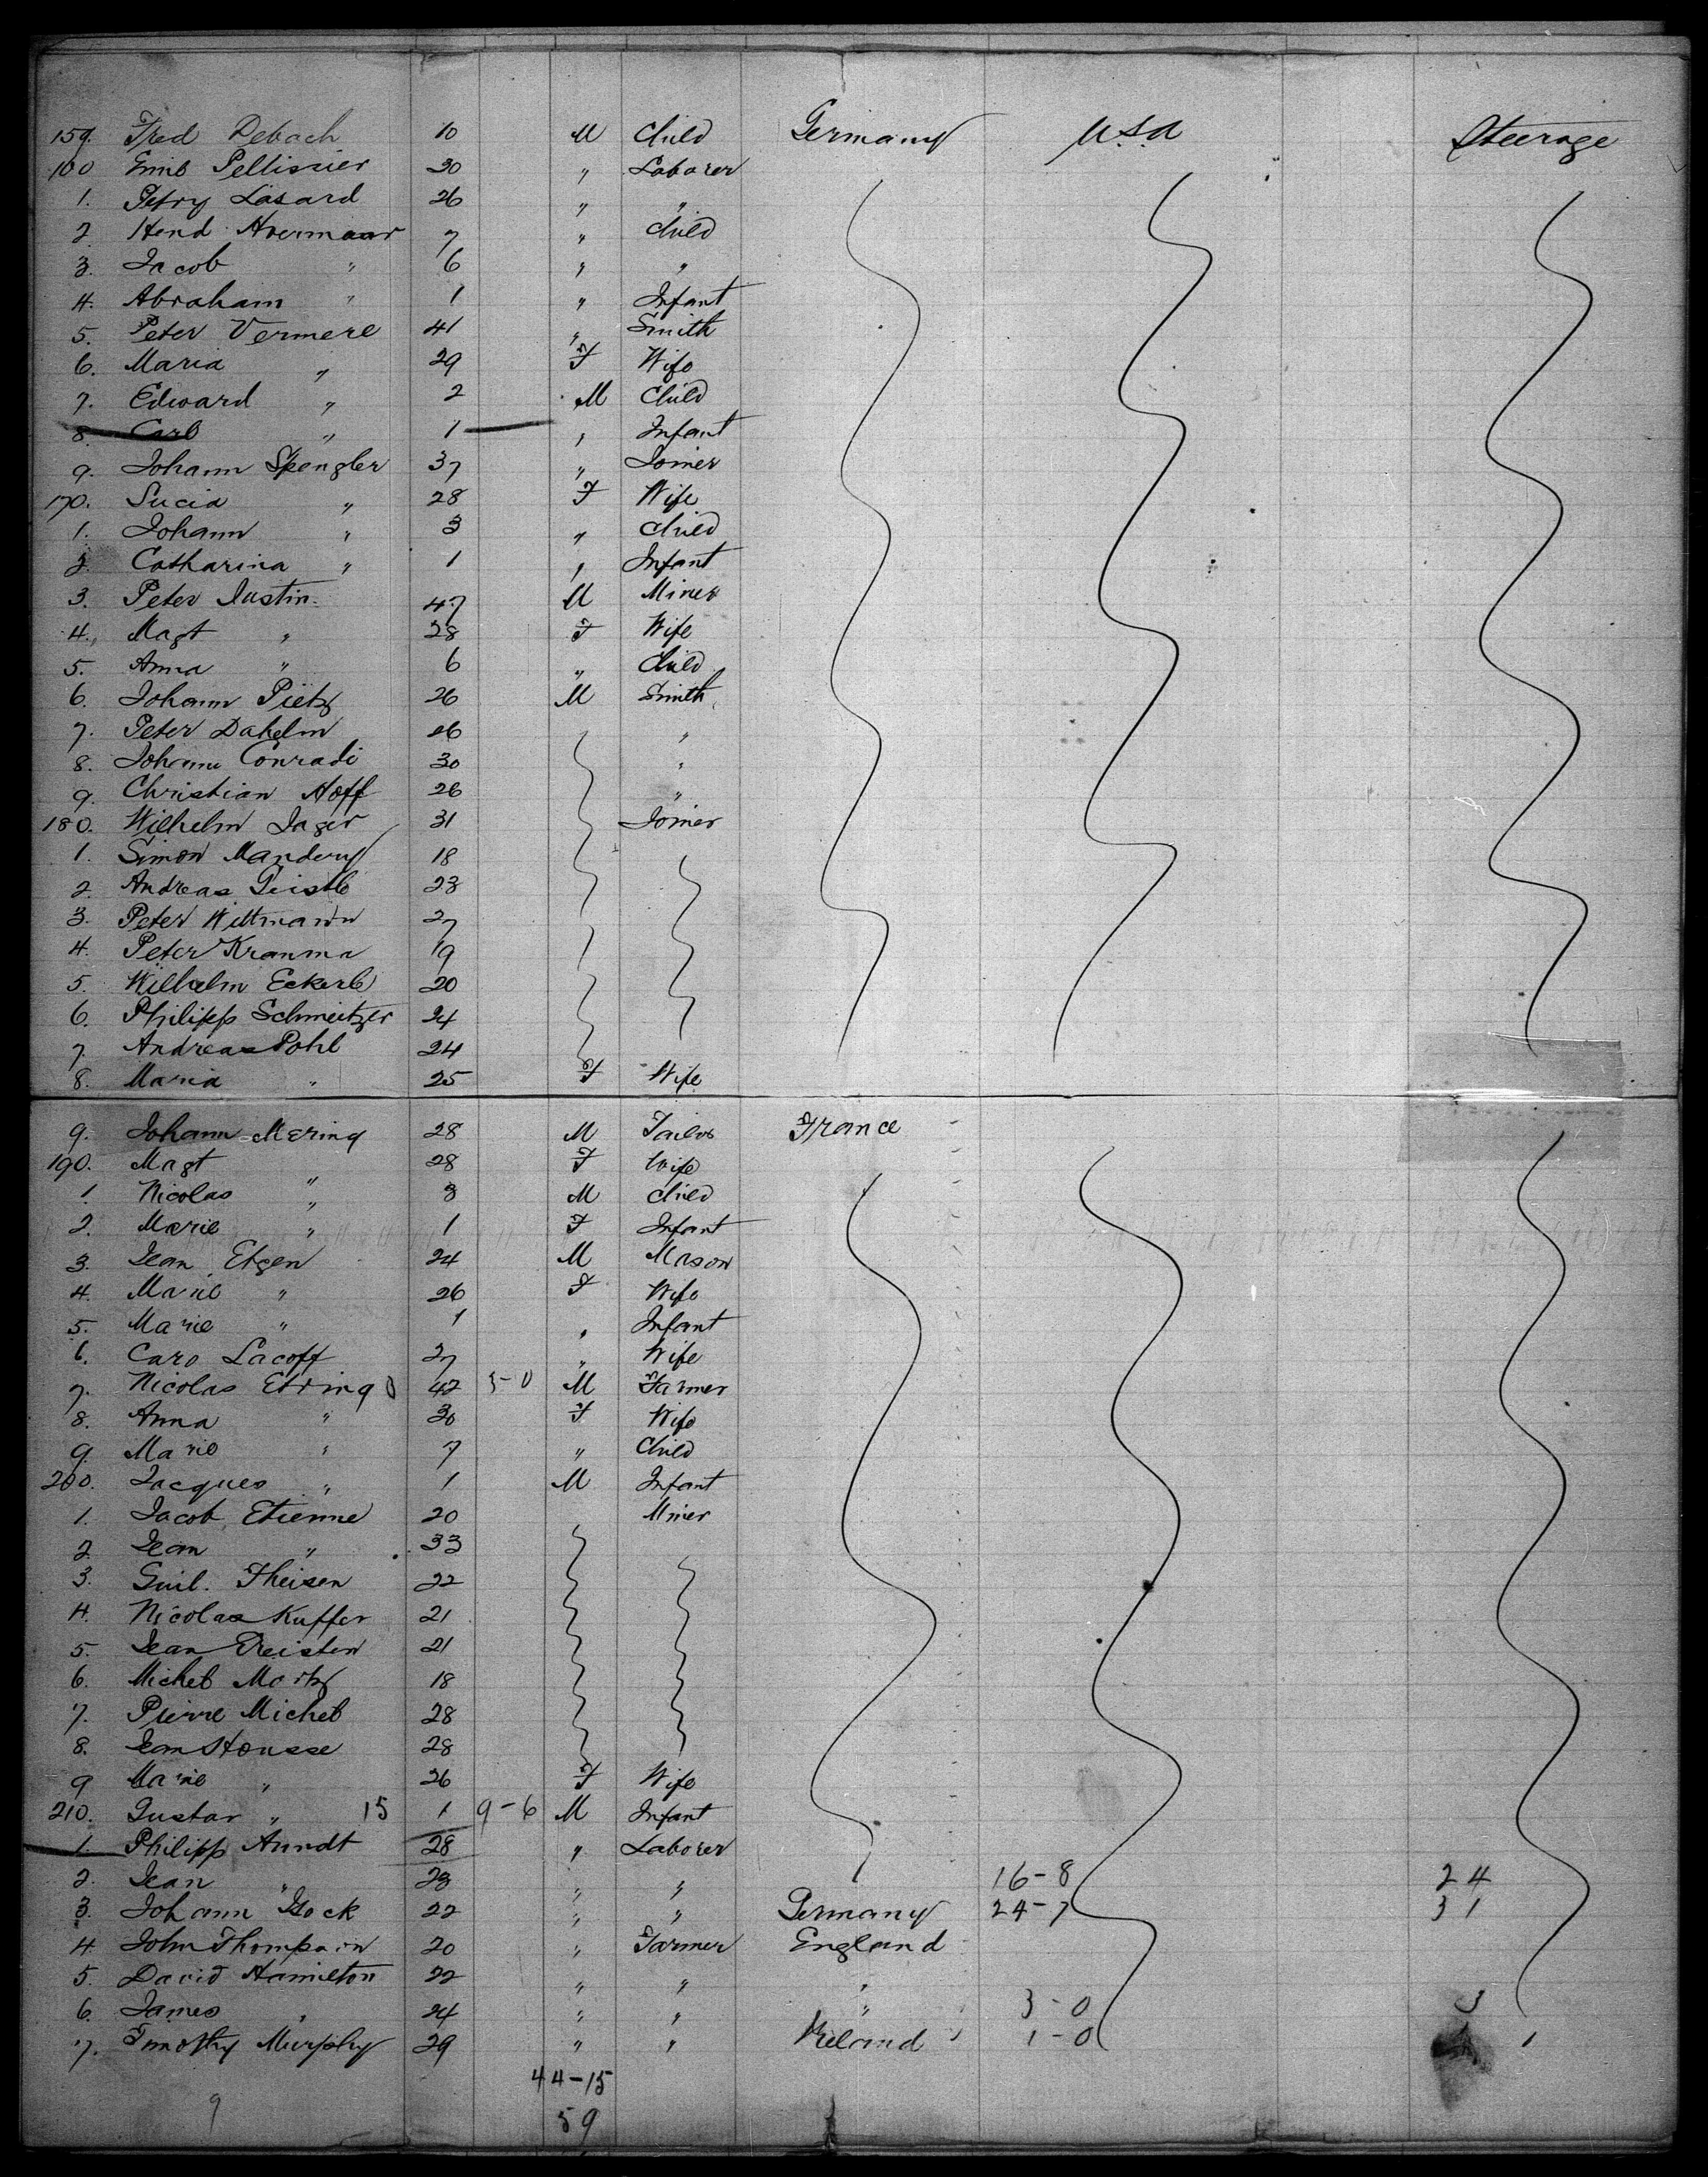 159. Fred Debach 10 M Child Germany U.S.A Steerage
160 Emil Pellissier 30 " Laborer
1. Petry Lasard 26 " "
2. Hend Avermaar 7 " Child
3. Jacob " 6 " "
4. Abraham " 1 " Infant
5. Peter Vermere 41 " Smith
6. Maria " 29 F Wife
7. Edward " 2 M Child
8. Carl " 1 " Infant
9. Johann Spengler 37 " Joiner
170. Lucia " 28 F Wife
1. Johann " 3 " Child
2. Catharina " 1 " Infant
3. Peter Justin 47 M Miner
4. Magt " 28 F Wife
5. Anna " 6 " Child
6. Johann Pietz 26 M Smith
7. Peter Dahelm 26 "
8. Johann Conradi 30 "
9. Christian Hoff 26 "
180. Wilhelm Jager 31 Joiner
1. Simon Mandery 18
2. Andreas 23
3. Peter Wittmann 27
4. Peter Kramma 19
5. Wilhelm Eckerle 20
6. Philipp Schmeitzer 24
7. Andreas Pohl 24
8. Maria " 25 F Wife
9. Johann Mering 28 M Tailor France
190. Magt " 28 F Wife
1. Nicolas " 3 M Child
2. Marie " 1 F Infant
3. Jean Etgen 24 M Mason
4. Marie " 26 F Wife
5. Marie " 1 " Infant
6. Caro Lacoff 27 " Wife
7. Nicolas Etring 42 5-0 M Farmer
8. Anna " 30 F Wife
9. Marie " 7 " Child
200. Jacques " 1 M Infant
1. Jacob Etienne 20 Miner
2. Jean " 33
3. Guil. Theisen 22
4. Nicolas Kuffer 21
5. Jean 21
6. Michel Moritz 18
7. Pierre Michel 28
8. Jean Housse 28
9 Marie " 26 F Wife
210. Gustav " 15 1 9-6 M Infant
1. Philipp Arndt 28 " Laborer
2. Jean " 28 " " 16-8 24
3. Johann Gock 22 " " Germany 24-7 31
4. John Thompson 20 " Farmer England
5. David Hamilton 22 " " "
6. James " 24 " " " 3-0 3
7. Timothy Murphy 29 " " Ireland 1-0 1
44-15
9 59